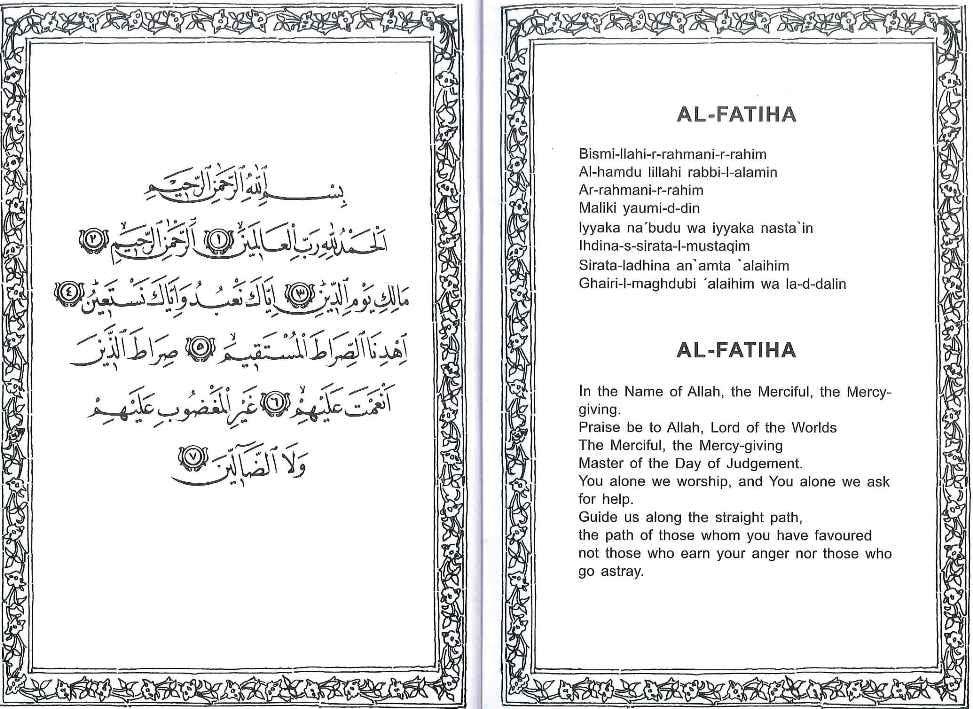 بِسْمِ ٱللَّهِ ٱلرَّحْمَٰنِ ٱلرَّحِيمِ
ٱلْحَمْدُ لِلَّهِ رَبِّ ٱلْعَالَمِينَ ١ ٱلرَّحْمَٰنِ ٱلرَّحِيمِ ٢
مَالِكِ يَوْمِ ٱلدِّينِ ٣ إِيَّاكَ نَعْبُدُ وَإِيَّاكَ نَسْتَعِينُ ٤
ٱهْدِنَا ٱلصِّرَاطَ ٱلْمُسْتَقِيمَ ٥ صِرَاطَ ٱلَّذِينَ
أَنْعَمْتَ عَلَيْهِمْ ٦ غَيْرِ ٱلْمَغْضُوبِ عَلَيْهِمْ
وَلَا ٱلضَّآلِّينَ ٧
AL-FATIHA
Bismi-llahi-r-rahmani-r-rahim
Al-hamdu lillahi rabbi-l-alamin
Ar-rahmani-r-rahim
Maliki yaumi-d-din
Iyyaka na´budu wa iyyaka nasta`in
Ihdina-s-sirata-l-mustaqim
Sirata-ladhina an`amta `alaihim
Ghairi-l-maghdubi ´alaihim wa la-d-dalin
AL-FATIHA
In the Name of Allah, the Merciful, the Mercy-
giving.
Praise be to Allah, Lord of the Worlds
The Merciful, the Mercy-giving
Master of the Day of Judgement.
You alone we worship, and You alone we ask
for help.
Guide us along the straight path,
the path of those whom you have favoured
not those who earn your anger nor those who
go astray.